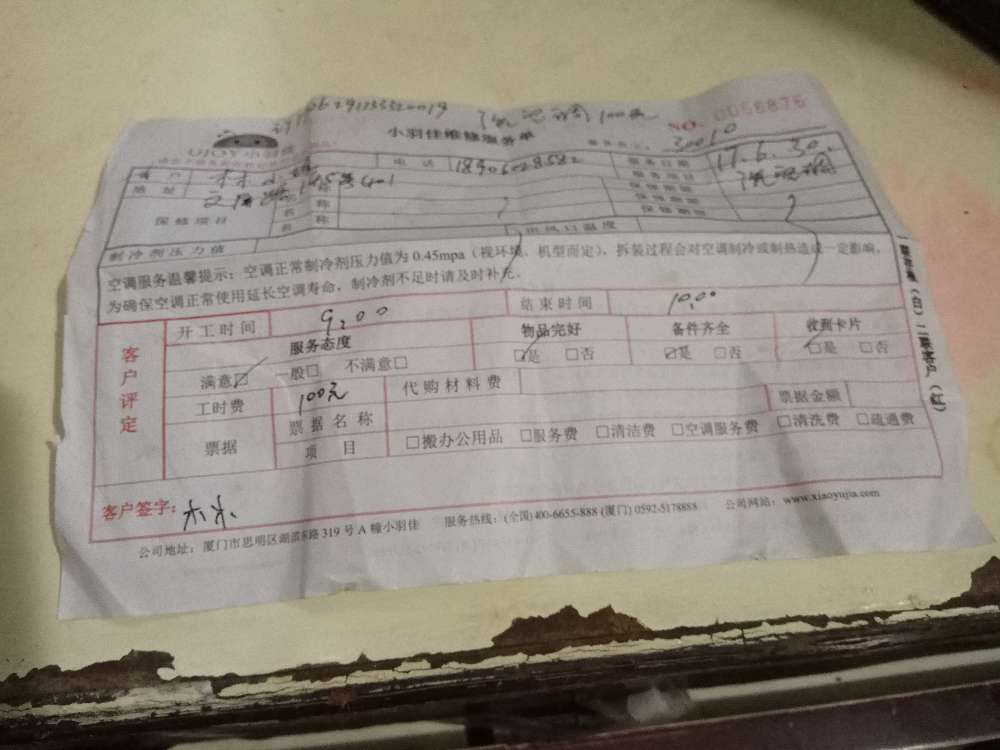 洗空调100元
NO. 0056876
UJOY小羽佳
小羽佳维修服务单
30010
客户 林小姐 电话 18906028582 服务日期 17.6.30.
地址 401 服务项目 洗空调
保修项目 名称 保修期限
名称 保修期限
制冷剂压力值 出风口温度
空调服务温馨提示：空调正常制冷剂压力值为 0.45mpa（视环境、机型而定），拆装过程会对空调制冷或制热造成一定影响。
为确保空调正常使用延长空调寿命，制冷剂不足时请及时补充。
客户评定
开工时间 9:00 结束时间 10:00
服务态度 物品完好 备件齐全 收到卡片
满意☑ 一般□ 不满意□ ☑是 □否 ☑是 □否 ☑是 □否
工时费 100元 代购材料费
票据 票据名称 票据金额
项目 □搬办公用品 □服务费 □清洁费 □空调服务费 □清洗费 □疏通费
客户签字：林
公司地址：厦门市思明区湖滨东路 319 号 A 幢小羽佳 服务热线：(全国) 400-6655-888 (厦门) 0592-5178888 公司网站：www.xiaoyujia.com
（白）二联客户（红）